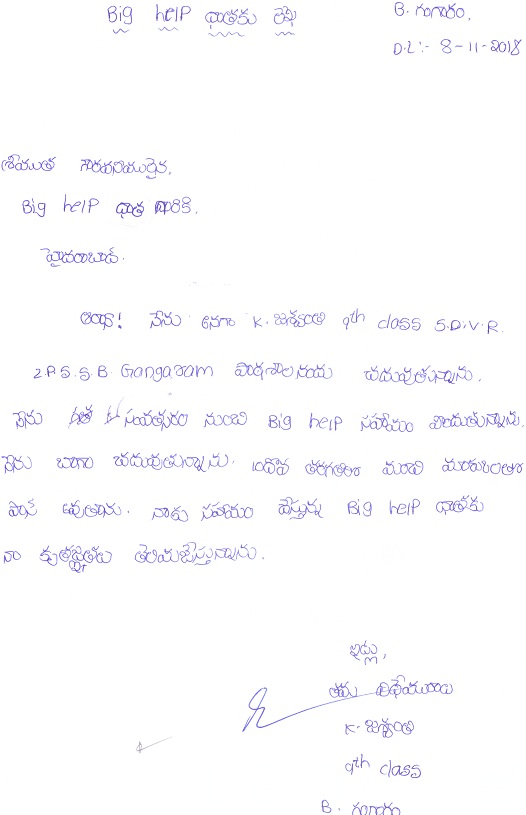 Big help దాతకు లేఖ
B. గంగారం,
D.L:- 8-11-2018
శ్రీయుత గౌరవనియులైన,
Big help దాత గారికి,
హైదరాబాద్.
అయ్యా! నేను అనగా K. జశ్వంతి 9th class S.D.V.R.
Z.P.S.S. B. Gangaram పాఠశాలనయ చదువుతున్నాను.
నేను గత సంవత్సరం నుండి Big help సహాయం పొందుతున్నాను.
నేను బాగా చదువుతున్నాను. 10వ తరగతిలో మంచి మార్కులతో
పాస్ అవుతాను. నాకు సహాయం చేస్తున్న Big help దాతకు
నా కృతజ్ఞతలు తెలియజేస్తున్నాను.
ఇట్లు,
తమ విధేయురాలు
K. జశ్వంతి
9th class
B. గంగారం